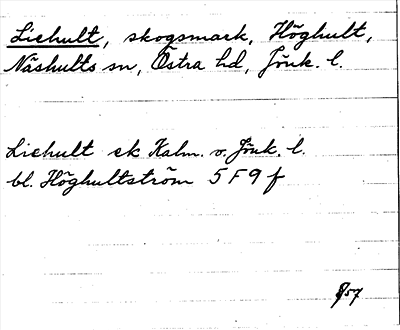 Liehult, skogsmark, Höghult,
Näshults sn, Östra hd, Jönk. l.
Liehult ek Kalm. o. Jönk. l.
bl. Höghultström 5 F 9 f
57